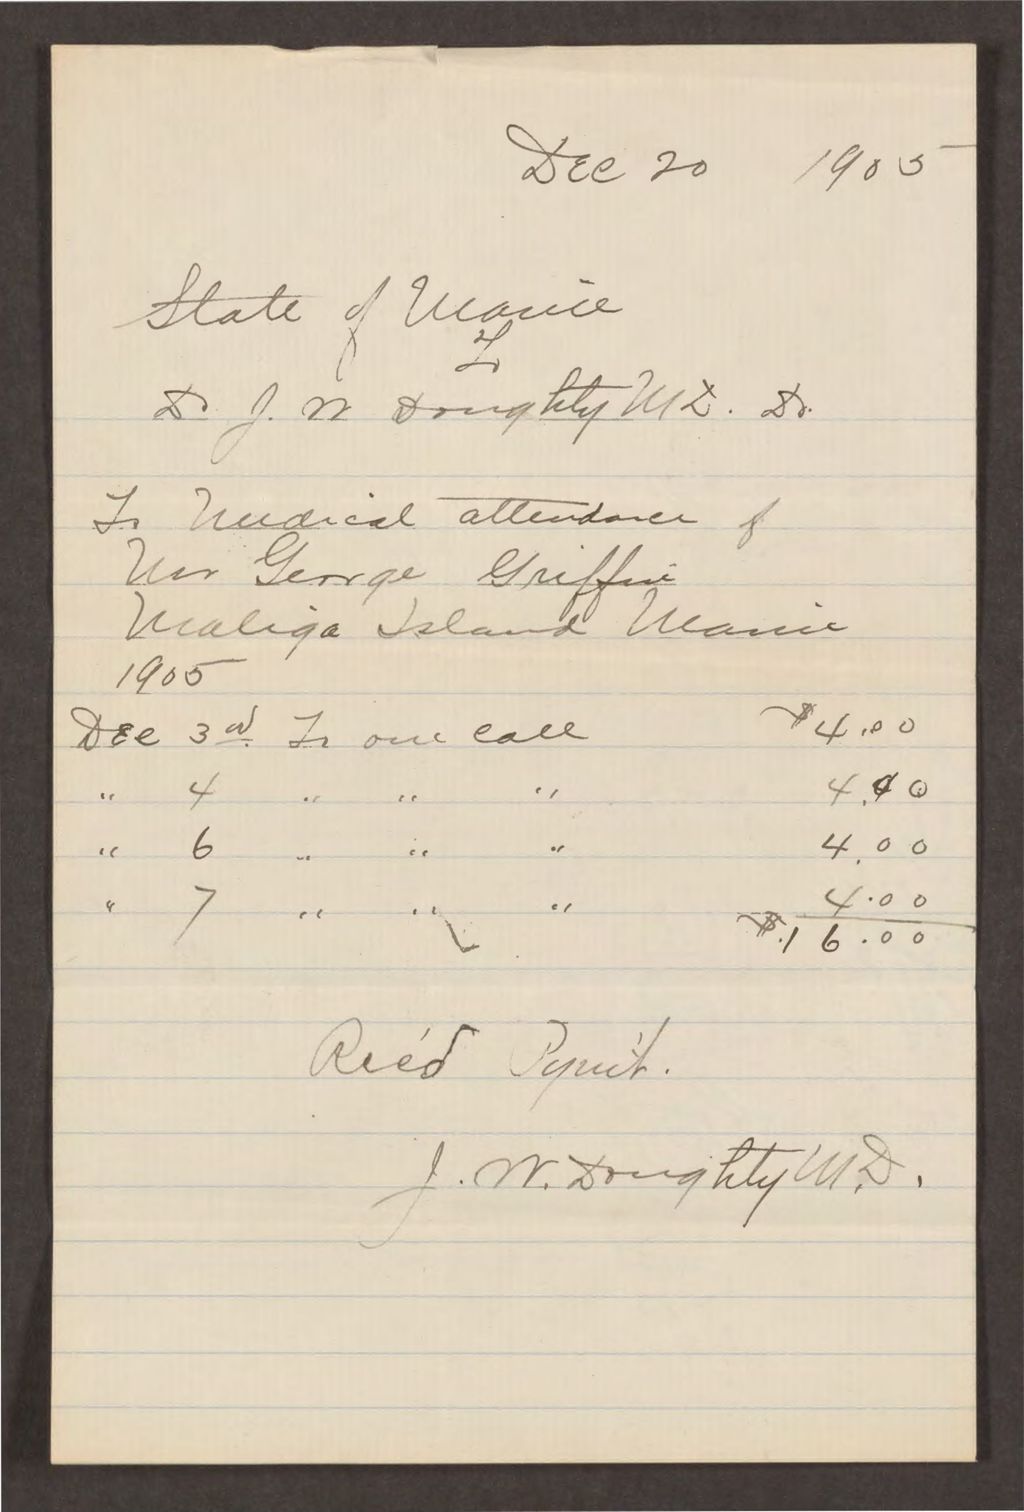 Dec 20 1905
State of Maine
To
Dr J. W Doughty M D. Dr.
To Medical attendance of
Mr George Griffin
Maliga Island Maine
1905
Dec 3rd. To one call $4.00
" 4 " " " 4.00
" 6 " " " 4.00
" 7 " " " 4.00
$.16.00
Rec'd Pym't.
J. W. Doughty M.D.